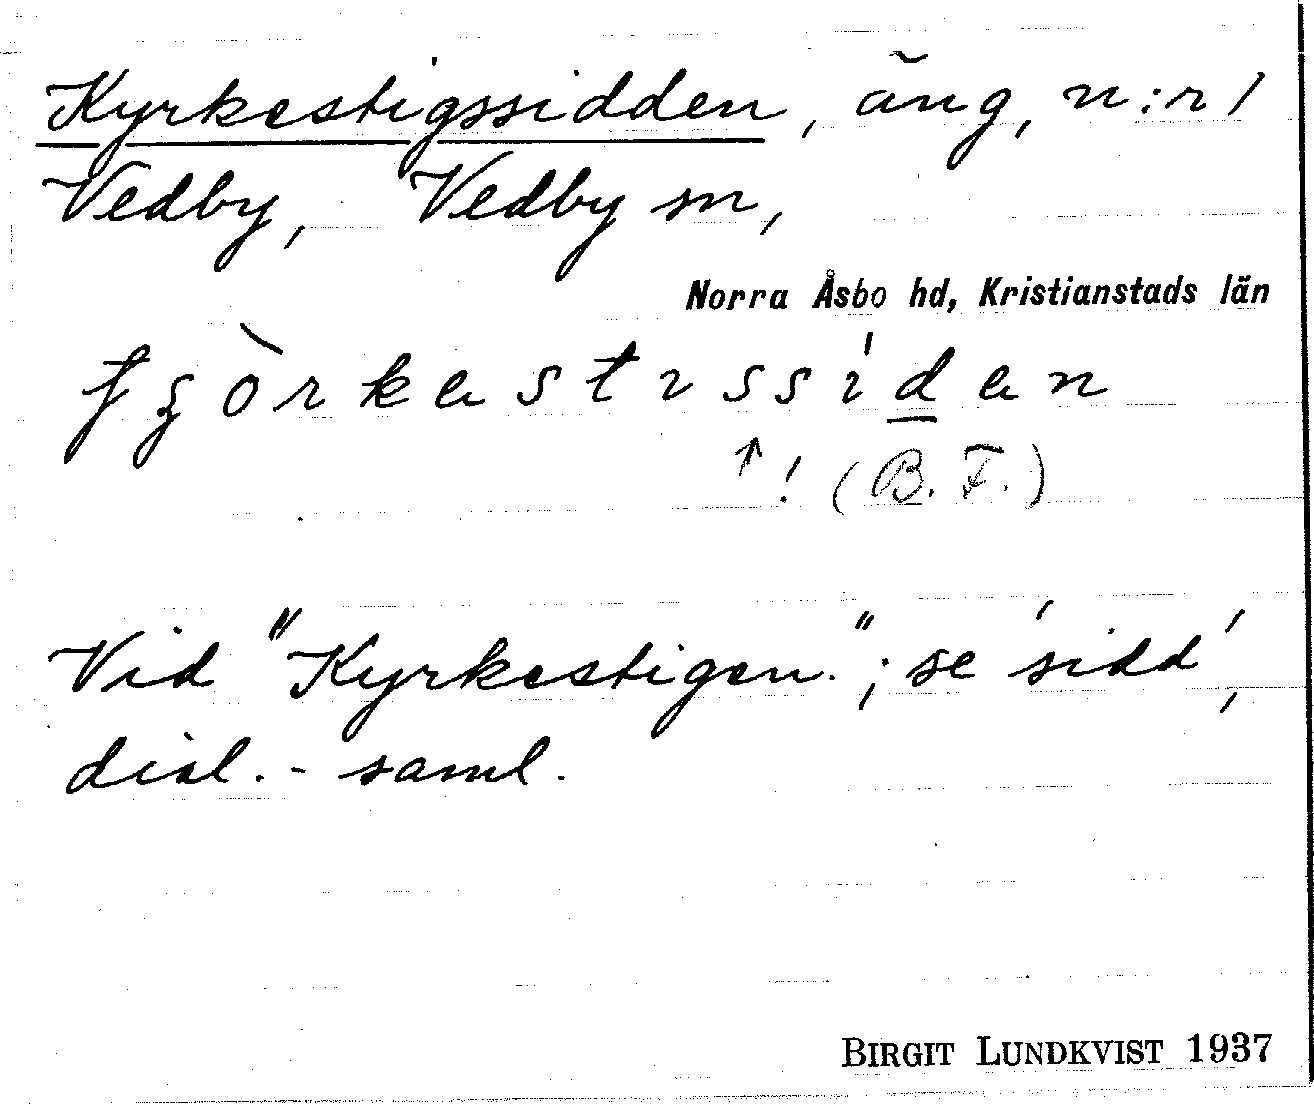 Kyrkestigssidden, äng, n:r 1
Vedby, Vedby sn,
Norra Åsbo hd, Kristianstads län
↑! (B. F.)
Vid "Kyrkestigen."; se 'sidd',
dial.-saml.
BIRGIT LUNDKVIST 1937